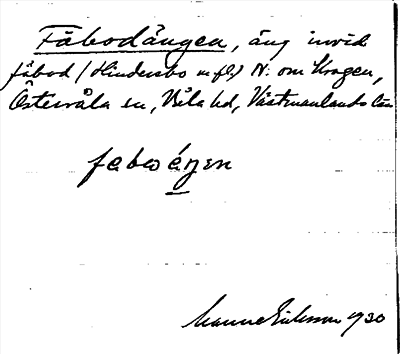 Fäbodängen, äng invid
fäbod (Hindersbo m fl) N. om Kragen,
Östervåla sn, Våla hd, Västmanlands län
fabωáŋen
Manne Eriksson 1930